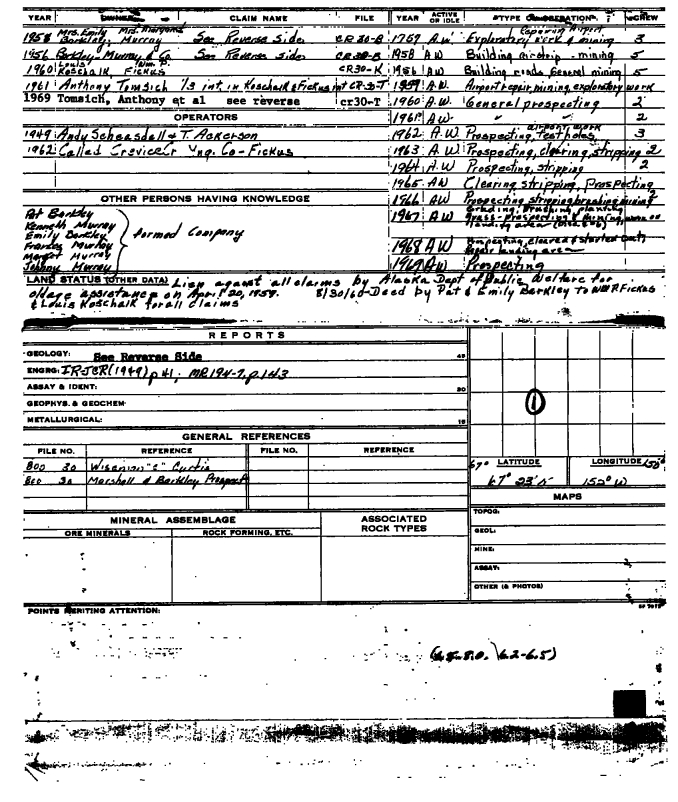 YEAR OWNER CLAIM NAME FILE YEAR ACTIVE OR IDLE TYPE OPERATION CREW
1958 Mrs. Emily Berkley, Mrs. Margaret Murray See Reverse Side CR 30-B 1959 A.W. Exploratory work & mining 3
1956 Berkley-Murray & Co. See Reverse Side CR 30-B 1958 A W Building airstrip - mining 5
1960 Louis Koschalk, Wm. P. Fickus CR30-K 1956 A W Building roads General mining 5
1961 Anthony Tomsich 1/3 int. in Koschalk & Fickus int CR-30-T 1959 A.W. Airport repair, mining, exploratory work
1969 Tomsich, Anthony et al see reverse cr30-T 1960 A.W. General prospecting 2
OPERATORS 1961 A W " " 2
1949 Andy Scheasdall & T. Ackerson 1962 A.W. Prospecting, Testholes, airport work 3
1962 Called Crevice Cr Mng. Co-Fickus 1963 A.W Prospecting, clearing, stripping 2
1964 A.W Prospecting, stripping 2
1965 AW Clearing stripping, Prospecting
OTHER PERSONS HAVING KNOWLEDGE 1966 AW Prospecting stripping mining 2
Pat Berkley
Kenneth Murray
Emily Berkley
Frances Murray
Margaret Murray
Johnny Murray
formed Company
1967 A W Grading, brushing, planting grass - prospecting & mining landing area
1968 A W Prospecting, cleared & started landing area
1969 AW Prospecting
LAND STATUS (OTHER DATA) Lien against all claims by Alaska Dept of Public Welfare for
old age assistance on April 20, 1959. 8/30/60-Deed by Pat & Emily Berkley to WM P. Fickus
& Louis Koschalk for all claims
REPORTS
GEOLOGY: See Reverse Side
ENGRG: IRJCR (1949) p 41; MR 194-7, p.143
ASSAY & IDENT:
GEOPHYS. & GEOCHEM:
METALLURGICAL:
GENERAL REFERENCES
FILE NO. REFERENCE FILE NO. REFERENCE
800 30 Wiseman "C" Curtis
800 30 Marshall & Berkley Prospect
1
67° LATITUDE LONGITUDE
67° 23' N 152° W
MAPS
TOPOG:
GEOL:
MINE:
ASSAY:
OTHER (& PHOTOS)
MINERAL ASSEMBLAGE ASSOCIATED ROCK TYPES
ORE MINERALS ROCK FORMING, ETC.
POINTS MERITING ATTENTION:
6.2-6.5)